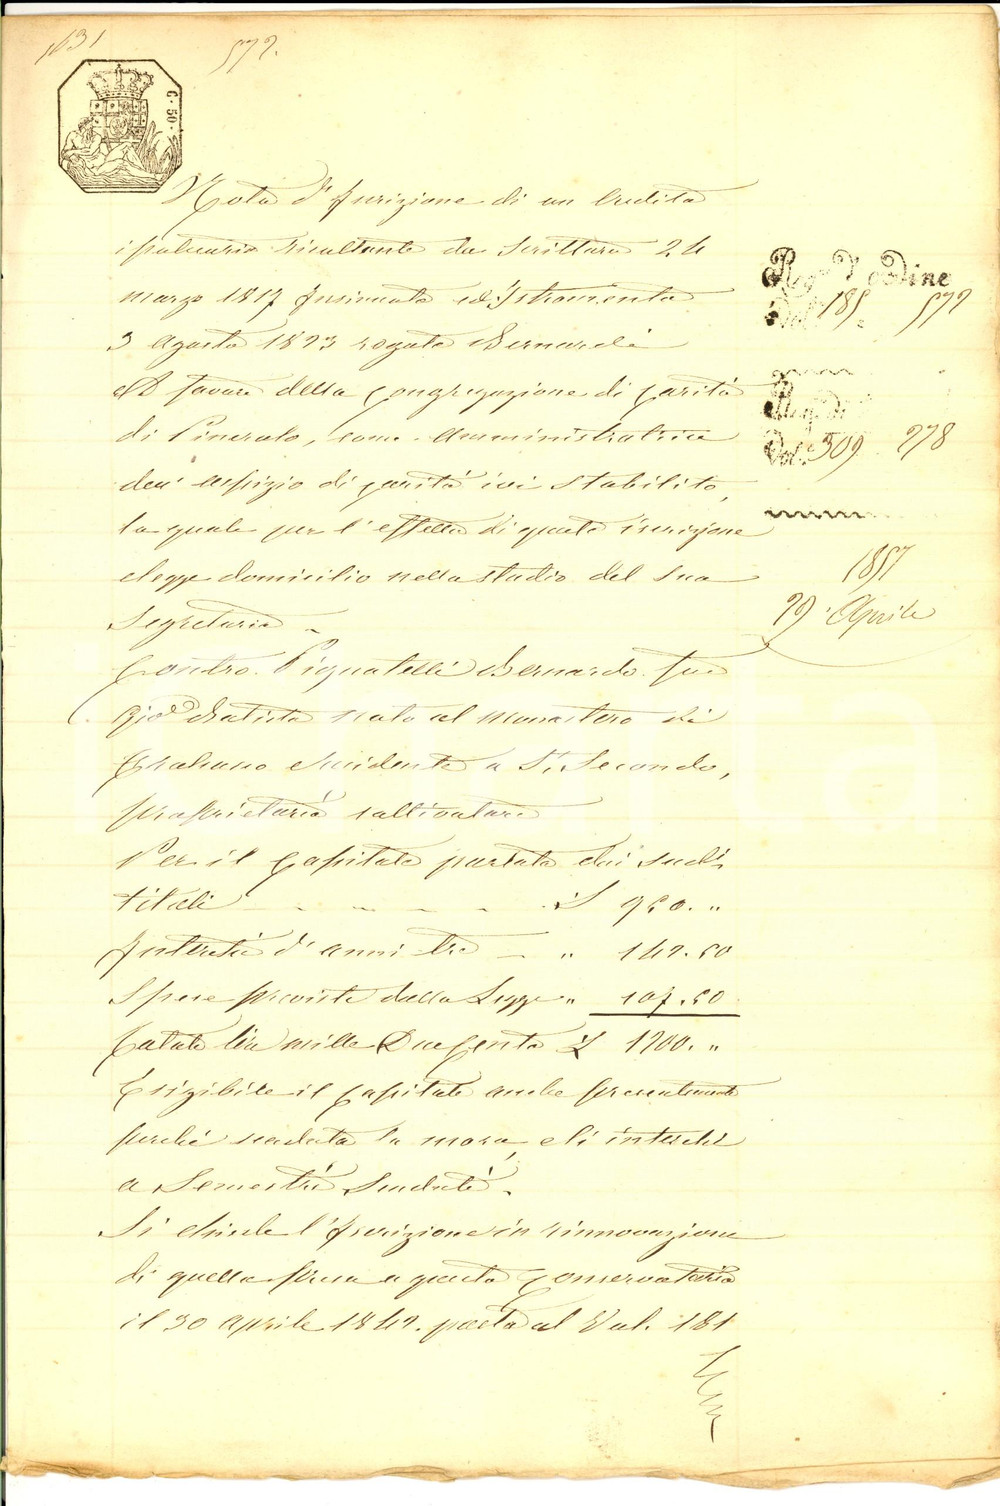 1631 572.
C. 50.
Nota d'Iscrizione di un Credito
ipotecario risultante da Scrittura 24
marzo 1817 Insinuata ed Istromento
3 Agosto 1823 rogato Bernardi
A favore della Congregazione di Carità
di Pinerolo, come amministratrice
dell'ospizio di Carità ivi stabilito,
la quale per l'effetto di questa iscrizione
elegge domicilio nello studio del suo
Segretario
Contro Pignatelli Bernardo fu
Gio Batista nato al monastero di
residente a S. Secondo,
proprietario coltivatore
Per il Capitale portato dai sudi
titoli £ 950. "
Interessi d'anni tre " 142.50
Spese previste dalla Legge " 107.50
Totale lire mille Duecento £ 1200. "
Esigibile il Capitale anche presentemente
perché scaduta la mora, e li interessi
a Semestri scaduti.
Si chiede l'Iscrizione in rinnovazione
di quella presa a questa Conservatoria
il 30 Aprile 1842. posta al Vol. 181
Reg. d'ordine
Vol. 185 572
Reg. di
Vol. 309 278
1857
29 Aprile